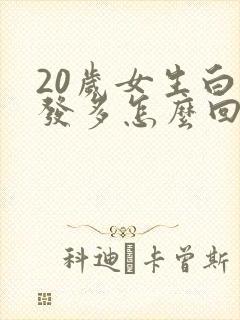 20歲女生白
發多怎麼回
科迪·卡曾斯